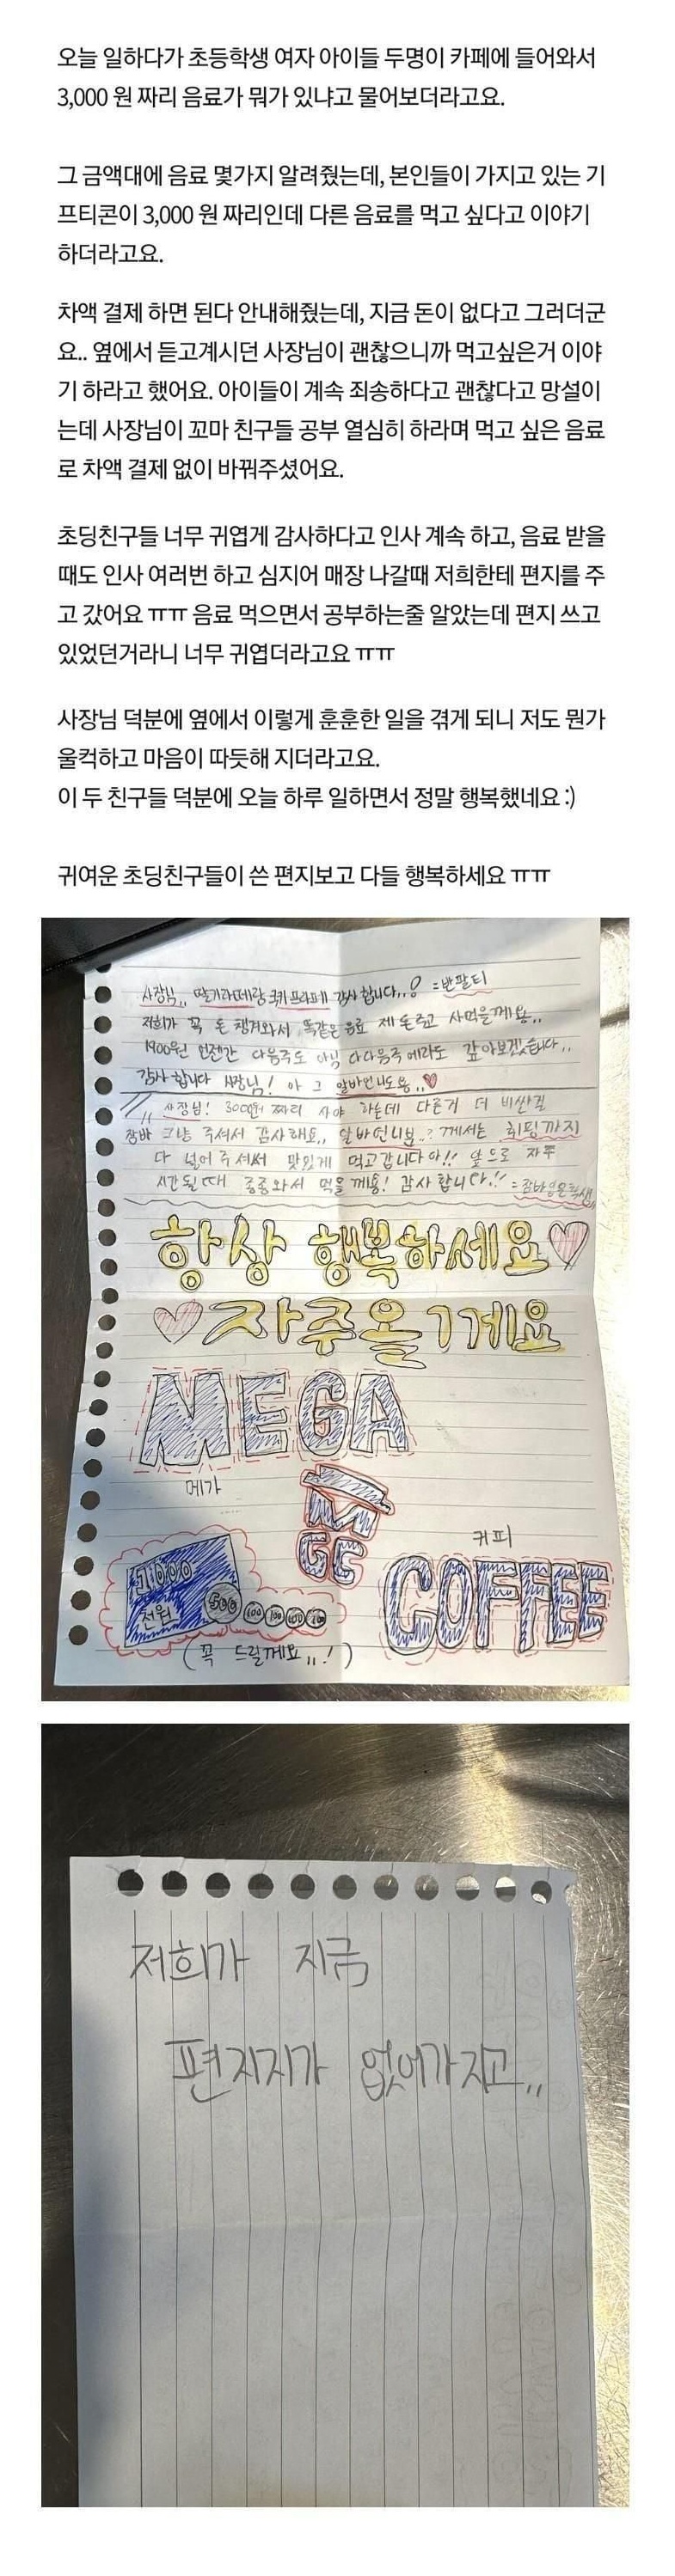 오늘 일하다가 초등학생 여자 아이들 두명이 카페에 들어와서
3,000 원 짜리 음료가 뭐가 있냐고 물어보더라고요.
그 금액대에 음료 몇가지 알려줬는데, 본인들이 가지고 있는 기
프티콘이 3,000 원 짜리인데 다른 음료를 먹고 싶다고 이야기
하더라고요.
차액 결제 하면 된다 안내해줬는데, 지금 돈이 없다고 그러더군
요.. 옆에서 듣고계시던 사장님이 괜찮으니까 먹고싶은거 이야
기 하라고 했어요. 아이들이 계속 죄송하다고 괜찮다고 망설이
는데 사장님이 꼬마 친구들 공부 열심히 하라며 먹고 싶은 음료
로 차액 결제 없이 바꿔주셨어요.
초딩친구들 너무 귀엽게 감사하다고 인사 계속 하고, 음료 받을
때도 인사 여러번 하고 심지어 매장 나갈때 저희한테 편지를 주
고 갔어요 ㅠㅠ 음료 먹으면서 공부하는줄 알았는데 편지 쓰고
있었던거라니 너무 귀엽더라고요 ㅠㅠ
사장님 덕분에 옆에서 이렇게 훈훈한 일을 겪게 되니 저도 뭔가
울컥하고 마음이 따듯해 지더라고요.
이 두 친구들 덕분에 오늘 하루 일하면서 정말 행복했네요 :)
귀여운 초딩친구들이 쓴 편지보고 다들 행복하세요 ㅠㅠ
사장님,, 딸기라떼랑 쿠키프라페 감사합니다,,! =반팔티
저희가 꼭 돈 챙겨와서 똑같은 음료 제 돈주고 사먹을께용,,
1900원 언젠간 다음주도 아님 다다음주 에라도 갚아보겠습니다,,
감사합니다 사장님! 아 그 알바언니도용,,♥
사장님! 3000원 짜리 사야 하는데 다른거 더 비싼걸
그냥 주셔서 감사해요,, 알바언니분..? 께서는 휘핑까지
다 넣어주셔서 맛있게 먹고갑니다아!! 앞으로 자주
시간될때 종종와서 먹을께용! 감사합니다!!
항상 행복하세요♡
♡자주올게요
MEGA
메가
MGC
커피
COFFEE
1000
천원
500
100 100 100 100
(꼭 드릴께요,,!)
저희가 지금
편지지가 없어가지고,,